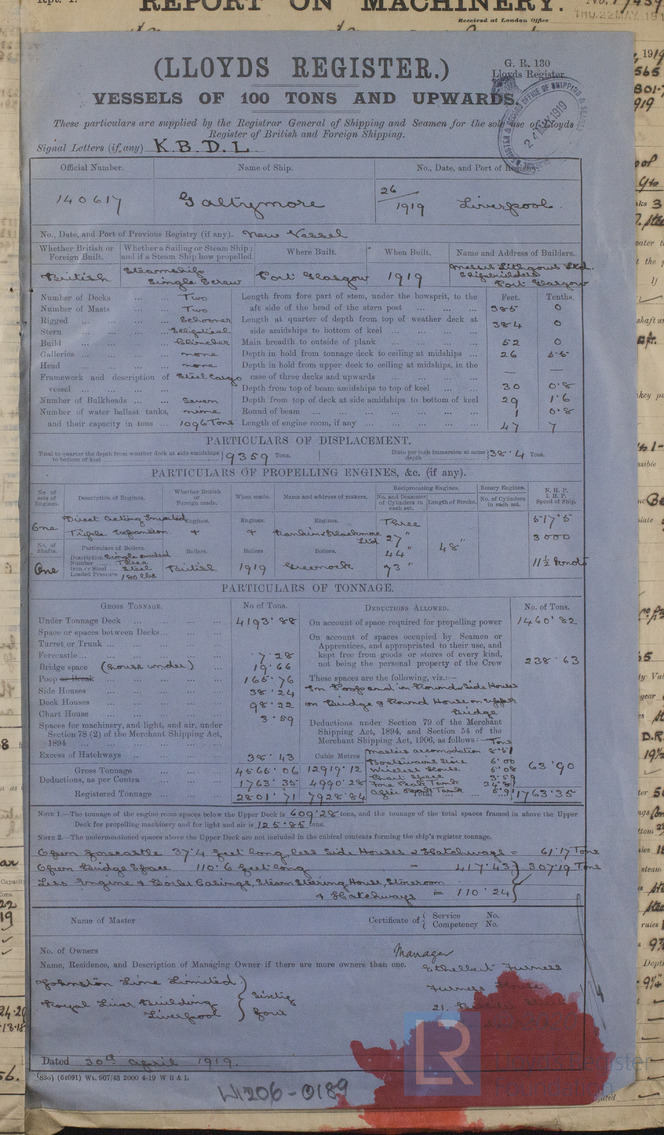 REPORT ON MACHINERY.
Received at London Office
THU. 22 MAY. 19
(LLOYDS REGISTER.)
G. R. 130
Lloyds Register
VESSELS OF 100 TONS AND UPWARDS.
These particulars are supplied by the Registrar General of Shipping and Seamen for the sole use of Lloyds
Register of British and Foreign Shipping.
Signal Letters (if any) K.B.D.L
Official Number. Name of Ship. No., Date, and Port of Registry.
140617 Galtymore 26/1919 Liverpool
No., Date, and Port of Previous Registry (if any). New Vessel
Whether British or Foreign Built. Whether a Sailing or Steam Ship; and if a Steam Ship how propelled. Where Built. When Built. Name and Address of Builders.
British Steamship Single Screw Port Glasgow 1919 Messrs Lithgows Ltd. Shipbuilders Port Glasgow
Number of Decks ... Two
Number of Masts ... Two
Rigged ... Schooner
Stern ... Elliptical
Build ... Clincher
Galleries ... none
Head ... none
Framework and description of vessel ... Steel Cargo
Number of Bulkheads ... Seven
Number of water ballast tanks, nine
and their capacity in tons ... 1096 Tons
Feet. Tenths.
Length from fore part of stem, under the bowsprit, to the
aft side of the head of the stern post ... 385 0
Length at quarter of depth from top of weather deck at
side amidships to bottom of keel ... 384 0
Main breadth to outside of plank ... 52 0
Depth in hold from tonnage deck to ceiling at midships ... 26 5.5
Depth in hold from upper deck to ceiling at midships, in the
case of three decks and upwards ... — —
Depth from top of beam amidships to top of keel ... 30 0.8
Depth from top of deck at side amidships to bottom of keel 29 1.6
Round of beam ... 1 0.8
Length of engine room, if any ... 47 7
PARTICULARS OF DISPLACEMENT.
Total to quarter the depth from weather deck at side amidships to bottom of keel 9359 Tons. Ditto per inch immersion at same depth 38.4 Tons.
PARTICULARS OF PROPELLING ENGINES, &c. (if any).
No. of sets of Engines. Description of Engines. Whether British or Foreign made. When made. Name and address of makers. Reciprocating Engines. No. and Diameter of Cylinders in each set. Length of Stroke. Rotary Engines. No. of Cylinders in each set. N.H.P. I.H.P. Speed of Ship.
One Direct Acting Inverted Triple Expansion Engines. Engines. Engines. Rankin & Blackmore Ltd Three 27" 44" 73" 48" 517.5 3000 11½ knots
No. of Shafts. Particulars of Boilers. Boilers. Boilers Boilers.
One Description Single ended
Number Three
Iron or Steel Steel
Loaded Pressure 180 lbs
British 1919 Greenock
PARTICULARS OF TONNAGE.
GROSS TONNAGE. No. of Tons. DEDUCTIONS ALLOWED. No. of Tons.
Under Tonnage Deck ... 4193.88
Space or spaces between Decks ...
Turret or Trunk ...
Forecastle ... 7.28
Bridge space (round under) 19.66
Poop or Break ... 165.76
Side Houses ... 38.24
Deck Houses ... 98.22
Chart House ... 3.59
Spaces for machinery, and light, and air, under
Section 78 (2) of the Merchant Shipping Act,
1894 ...
Excess of Hatchways ... 38.43 Cubic Metres
Gross Tonnage 4565.06 12919.12
Deductions, as per Contra 1763.35 4990.28
Registered Tonnage 2801.71 7928.84
On account of space required for propelling power 1460.82
On account of spaces occupied by Seamen or
Apprentices, and appropriated to their use, and
kept free from goods or stores of every kind,
not being the personal property of the Crew 238.63
These spaces are the following, viz.:—
In Poop and in Round Side Houses
on Bridge & Round House on Upper
Bridge
Deductions under Section 79 of the Merchant
Shipping Act, 1894, and Section 54 of the
Merchant Shipping Act, 1906, as follows: Tons
Master's accomodation 8.51
Boatswains Store 5.00
Wireless House 6.08
Chart Space 3.59
Fore Peak Tank
After Peak Tank
63.90
Total 1763.35
NOTE 1.—The tonnage of the engine room spaces below the Upper Deck is 609.28 tons, and the tonnage of the total spaces framed in above the Upper
Deck for propelling machinery and for light and air is 125.85 tons.
NOTE 2.—The undermentioned spaces above the Upper Deck are not included in the cubical contents forming the ship's register tonnage.
Open Forecastle 37.4 feet long, less Side Houses & Hatchways = 61.17 Tons
Open Bridge Space 110.6 feet long = 417.43 } 307.19 Tons
Less Engine & Boiler Casings, Steam Steering House, Storeroom
& Hatchways = 110.24
Name of Master Certificate of { Service No.
Competency No.
No. of Owners
Name, Residence, and Description of Managing Owner if there are more owners than one.
Manager
Ethelbert Furness
Furness House
21,
Johnston Line Limited
Royal Liver Building
Liverpool
} Sixty four
Dated 30th April 1919.
(830) (64091) Wt. 907/43 2000 4-19 W B & L
W1206-0189
LR